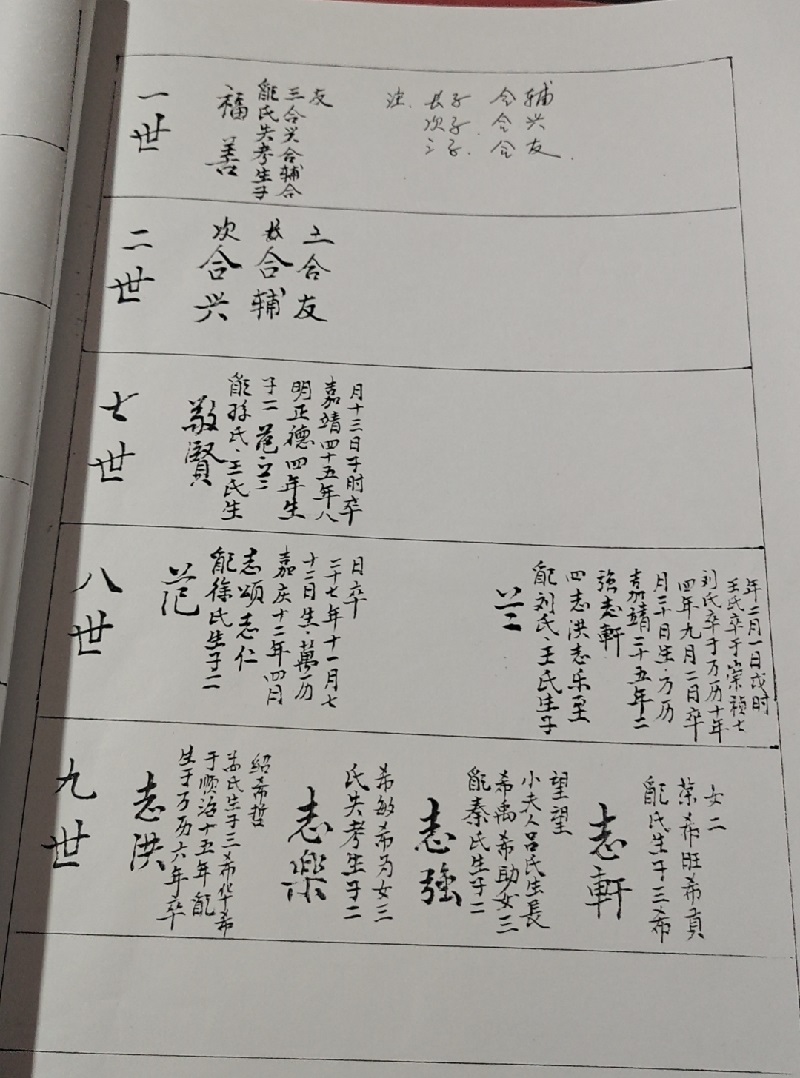 一世
福善
配氏失考生子
三合兴合辅合
友
注. 长子 合辅
次子. 合兴
三子. 合友.
二世
次合兴
长合辅
三合友
七世
敬賢
配孫氏.王氏生
子二 范 兰
明正德四年生
嘉靖四十五年八
月十三日子时卒
八世
范
配徐氏生子二
志頌志仁
嘉庆十二年四月
十二日生.萬历
二十七年十一月七
日卒
兰
配刘氏王氏生子
四志洪志乐至
強志軒
嘉靖三十五年二
月二十日生.万历
四年九月二日卒
刘氏卒于万历十年
王氏卒于崇祯七
年二月一日戌时
九世
志洪
生于万历六年卒
于顺治十五年配
氏生子三希华希
绍希哲
志樂
氏失考生子二
希敏希为女三
志強
配秦氏生子二
希禹希助女三
小夫人吕氏生長
望望
志軒
配氏生子三希
荣希旺希貢
女二